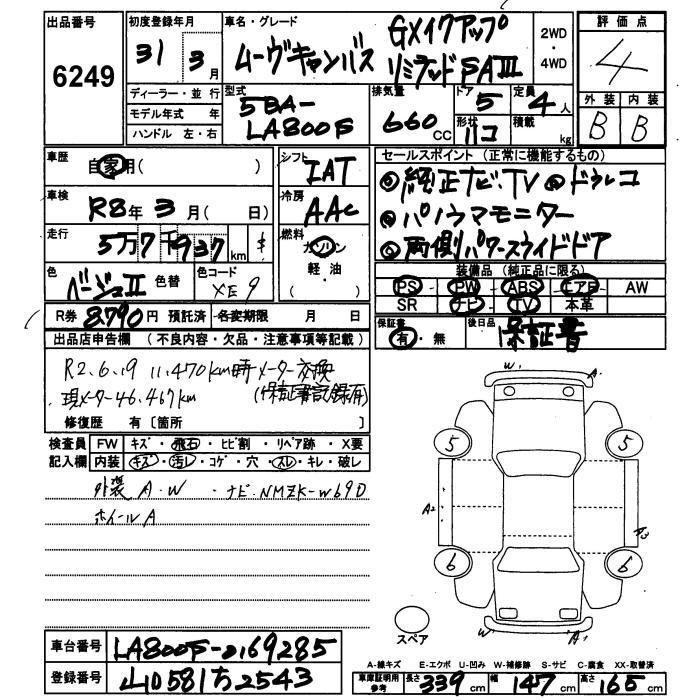 出品番号
6249
初度登録年月
31 3月
ディーラー・並行
モデル年式 年
ハンドル 左・右
車名・グレード
ムーヴキャンバス GXイクアップ リミテッドSAIII
2WD
・
4WD
評価点
4
外装 内装
B B
型式
5BA-
LA800S
排気量
660 CC
ドア
5
定員
4人
形状
ハコ
積載
kg
車歴
自家用( )
車検
R8年3月( 日)
走行
5万7千937km
色
ベージュII 色替
色コード
XE9
シフト
IAT
冷房
AAC
燃料
ガソリン
軽・油
( )
セールスポイント (正常に機能するもの)
◎純正ナビ、TV ◎ドラレコ
◎パノラマモニター
◎両側パワースライドドア
装備品 (純正品に限る)
PS - PW - ABS - エアB - AW
SR - ナビ - TV - 本革
保証書
有・無
後日品
保証書
R券 8,790円 預託済
名変期限 月 日
出品店申告欄 (不良内容・欠品・注意事項等記載)
R2.6.19 11,470km時メーター交換
現メーター46,467km (保証書記録有)
修復歴 有〔箇所 〕
検査員 記入欄
FW キズ・飛石・ヒビ割・リペア跡・X要
内装 キズ・汚レ・コゲ・穴・スレ・キレ・破レ
外装 A.W ・ナビ NMZK-W69D
ホイールA
W' A'
5 5
A2 A3
6 6
W' A'
スペア
A-線キズ E-エクボ U-凹み W-補修跡 S-サビ C-腐食 XX-取替済
車台番号 LA800S-0169285
登録番号 山口581ち2543
車庫証明用参考 長さ339cm 幅147cm 高さ165cm